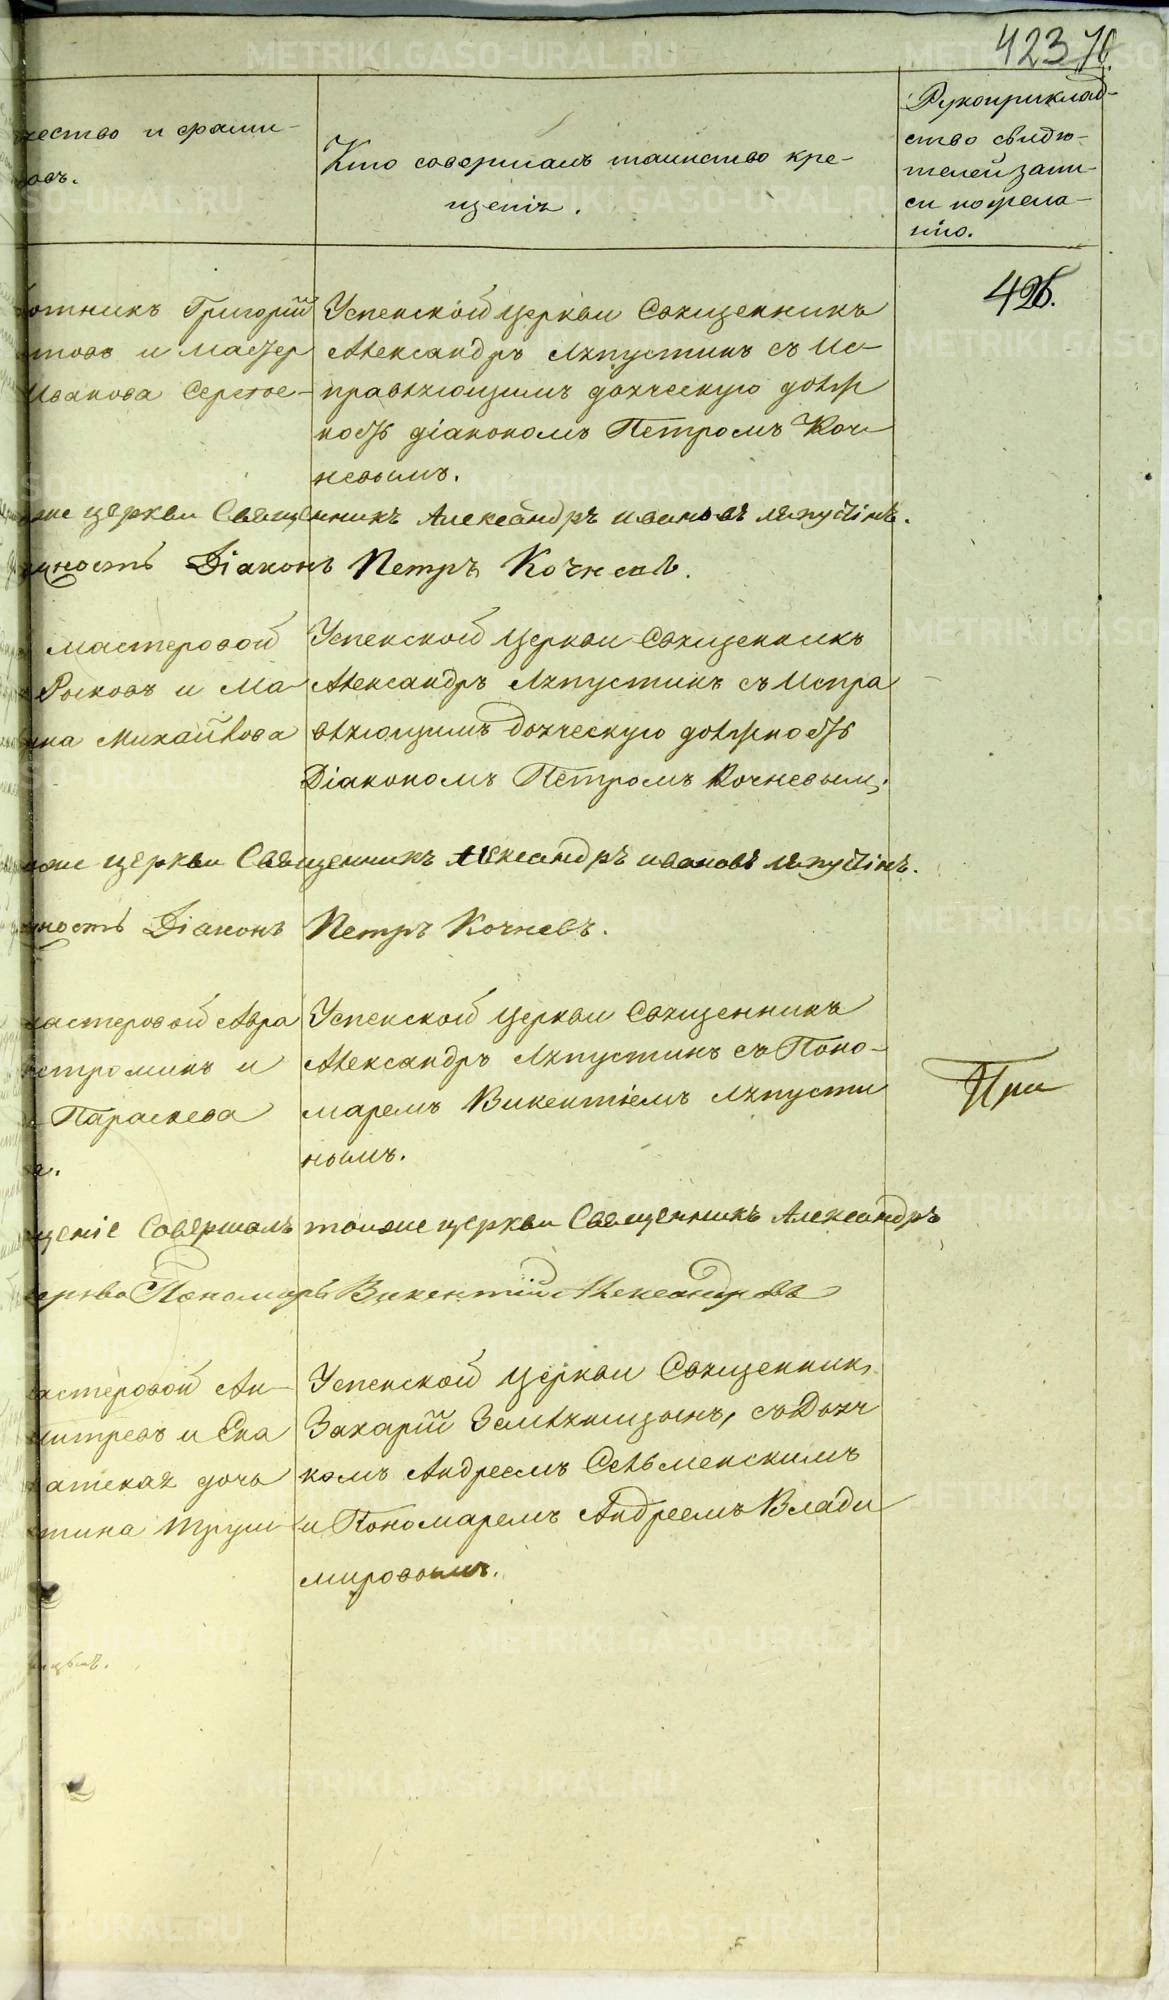 423 70.
чество и фами-
ковъ.
Кто совершалъ таинство кре-
щенія.
Рукоприклад-
ство свидѣ-
телей запи-
си по жела-
нію.
426.
ботникъ Григорій
товъ и мастер
Иванова Серебре-
Успенской церкви Священникъ
Александръ Ляпустинъ съ Ис-
правляющимъ дьяческую долж
ность діакономъ Петромъ Коч-
невымъ.
же церкви Священникъ Александръ Ивановъ Ляпустинъ.
ность Діаконъ Петръ Кочневъ.
мастеровой
Рысковъ и Ма
ина Михайлова
Успенской Церкви Священникъ
Александръ Ляпустинъ съ Испра
вляющимъ дьяческую должность
Діакономъ Петромъ Кочневымъ.
тоже церкви Священникъ Александръ Ивановъ Ляпустинъ.
ность Діаконъ Петръ Кочневъ.
мастеровой Авра
строминъ и
Параскева
а.
Успенской Церкви Священникъ
Александръ Ляпустинъ съ Поно-
маремъ Викентіемъ Ляпусти
нымъ.
При
щеніе совершалъ тоиже церкви Священникъ Александръ
Пономарь Викентій Александровъ
мастеровой Ан-
митревъ и Ека
датская дочь
тина Труш
Успенской Церкви Священникъ
Захарій Земляницынъ, съ Дьяч
комъ Андреемъ Сельменскимъ
и Пономаремъ Андреемъ Влади
мировымъ.
цынъ.
METRIKI.GASO-URAL.RU